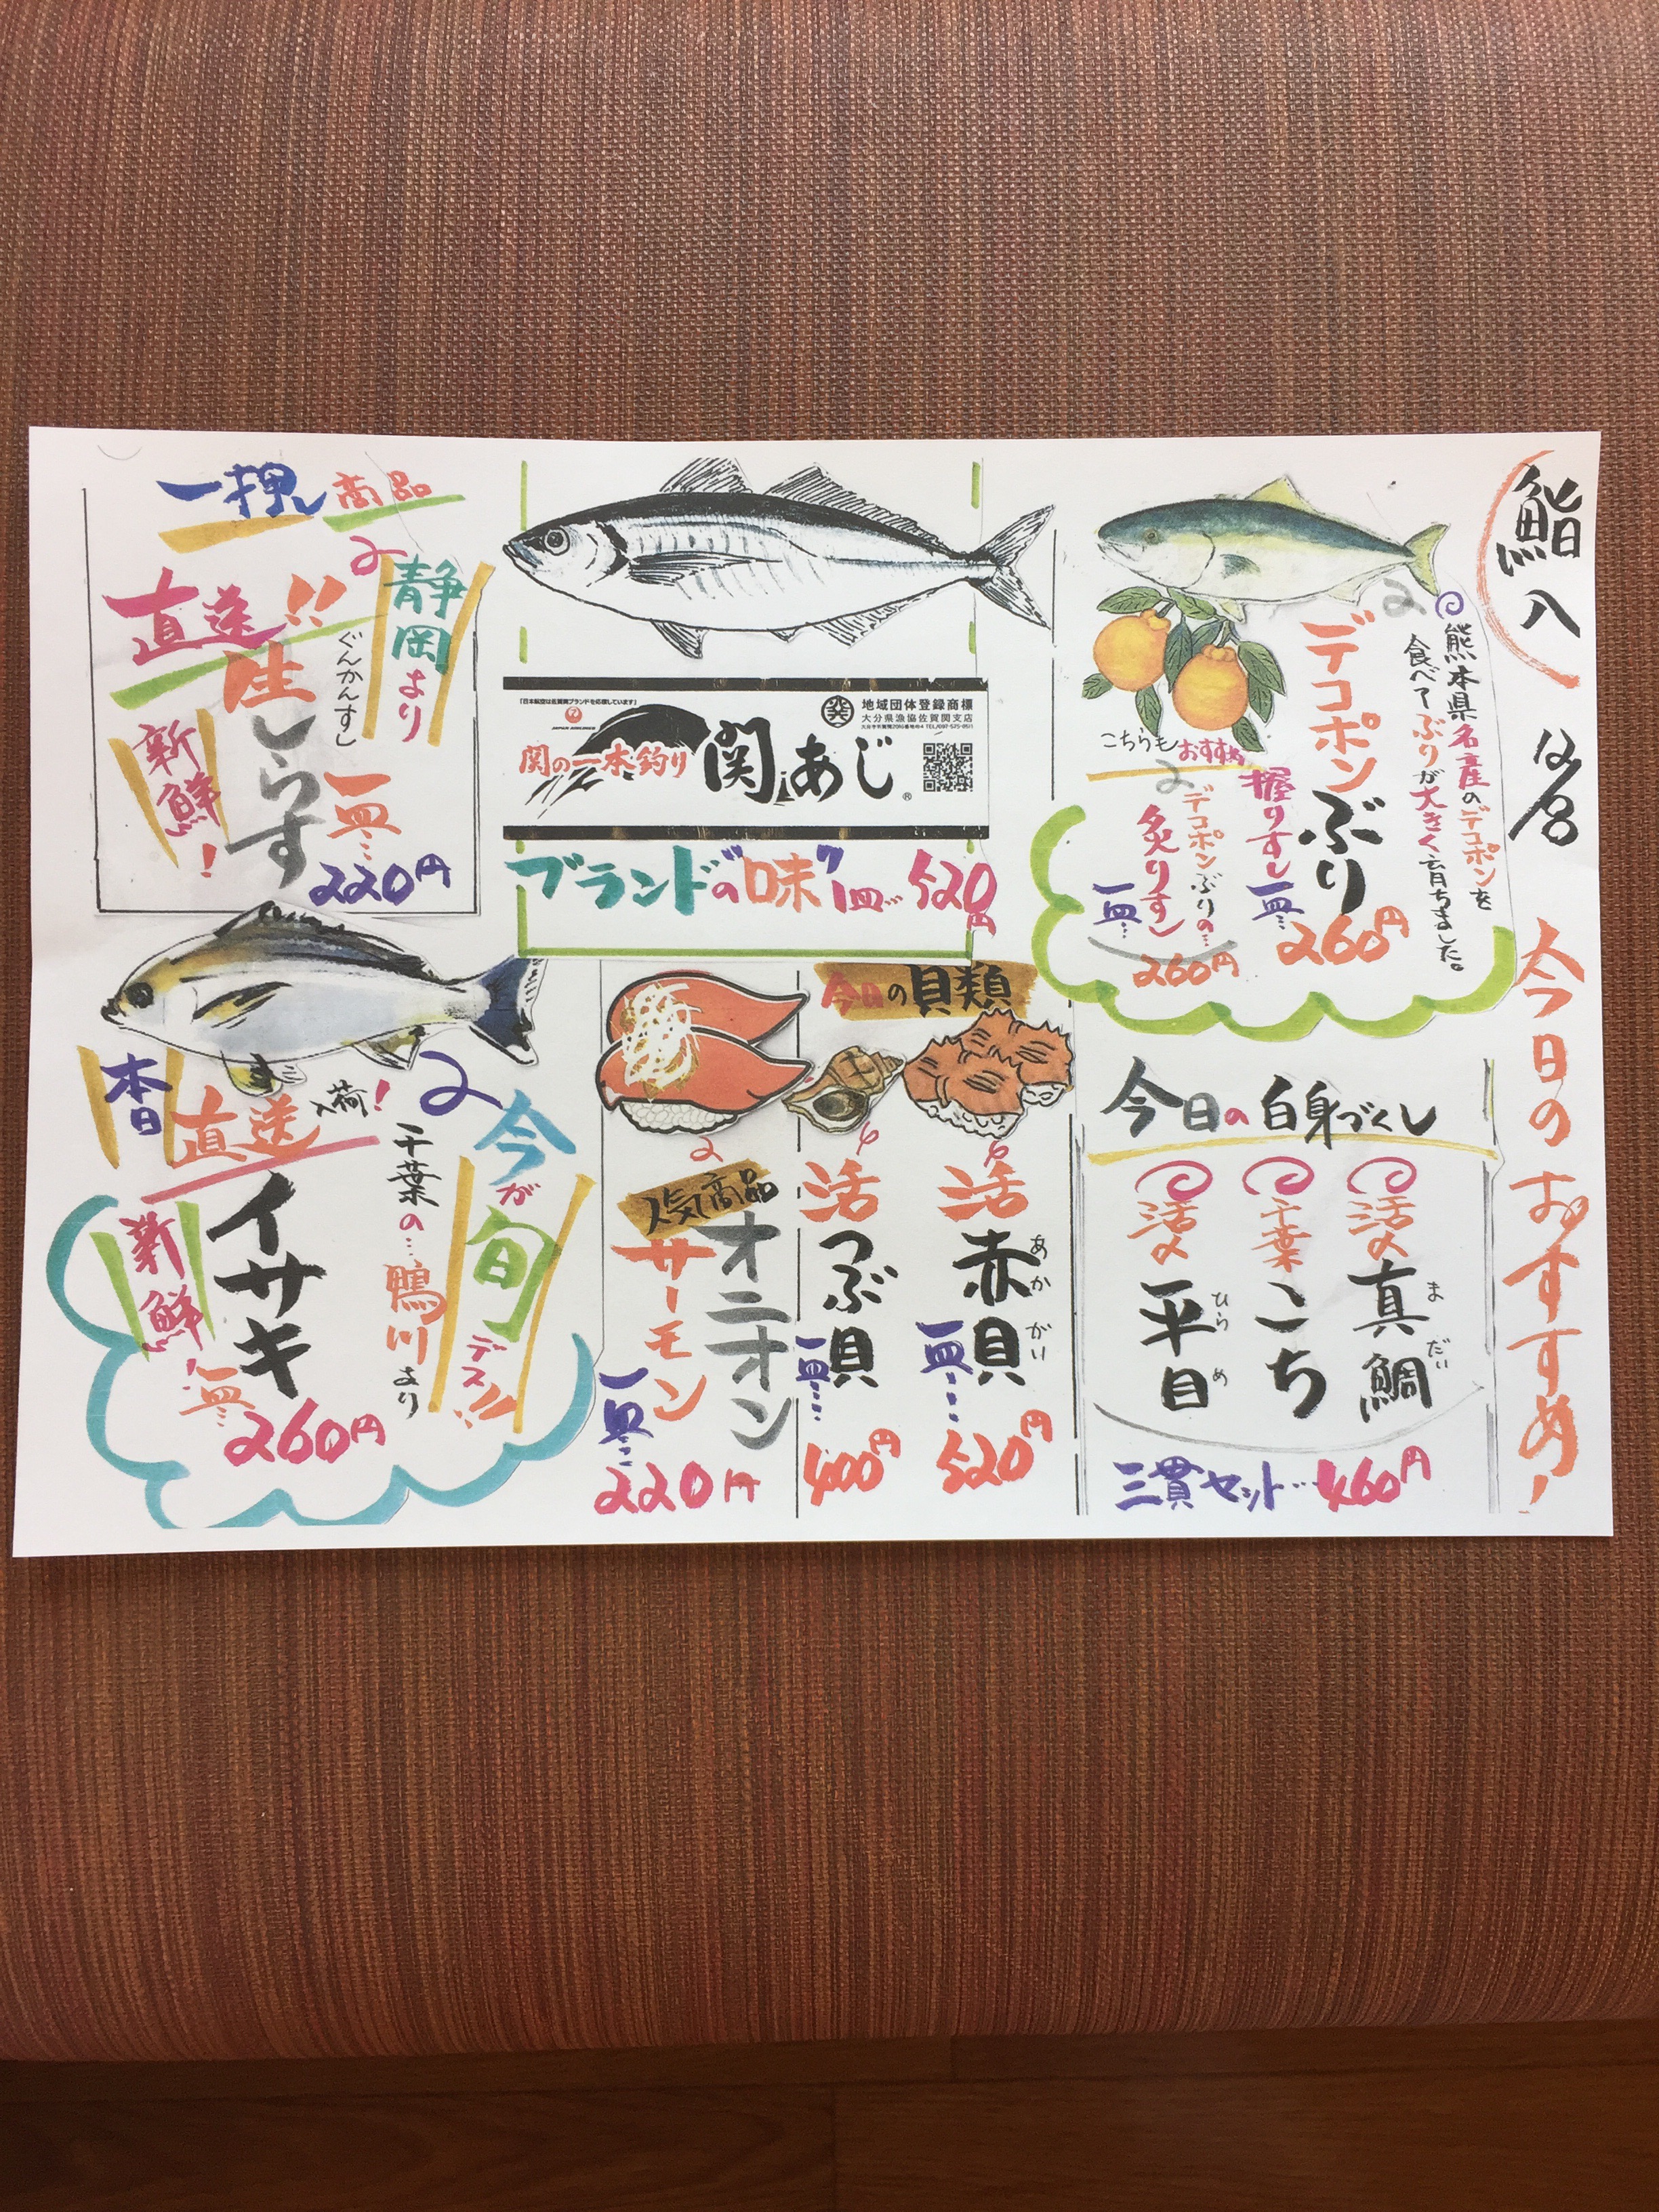 鮨八
今日のおすすめ!
熊本県名産のデコポンを
食べてぶりが大きく育ちました。
デコポン
ぶり
握りずし
一皿…
260円
こちらもおすすめ
デコポンぶりの…
炙りすし
一皿…
260円
「日本航空は佐賀関ブランドを応援しています」
JAPAN AIRLINES
地域団体登録商標
大分県漁協佐賀関支店
関の一本釣り
関あじ
ブランドの"味"1皿…520円
一押し商品
静岡より
直送!!
ぐんかんすし
生しらす
新鮮!
一皿…
220円
今日の白身づくし
活〆真鯛
まだい
千葉こち
活〆平目
ひらめ
三貫セット…460円
今日の貝類
活赤貝
あかがい
一皿…
520円
活つぶ貝
一皿…
400円
人気商品
オニオン
サーモン
一皿…
220円
今が旬デス!!
千葉の…鴨川より
本日直送入荷!
イサキ
新鮮!
一皿…
260円